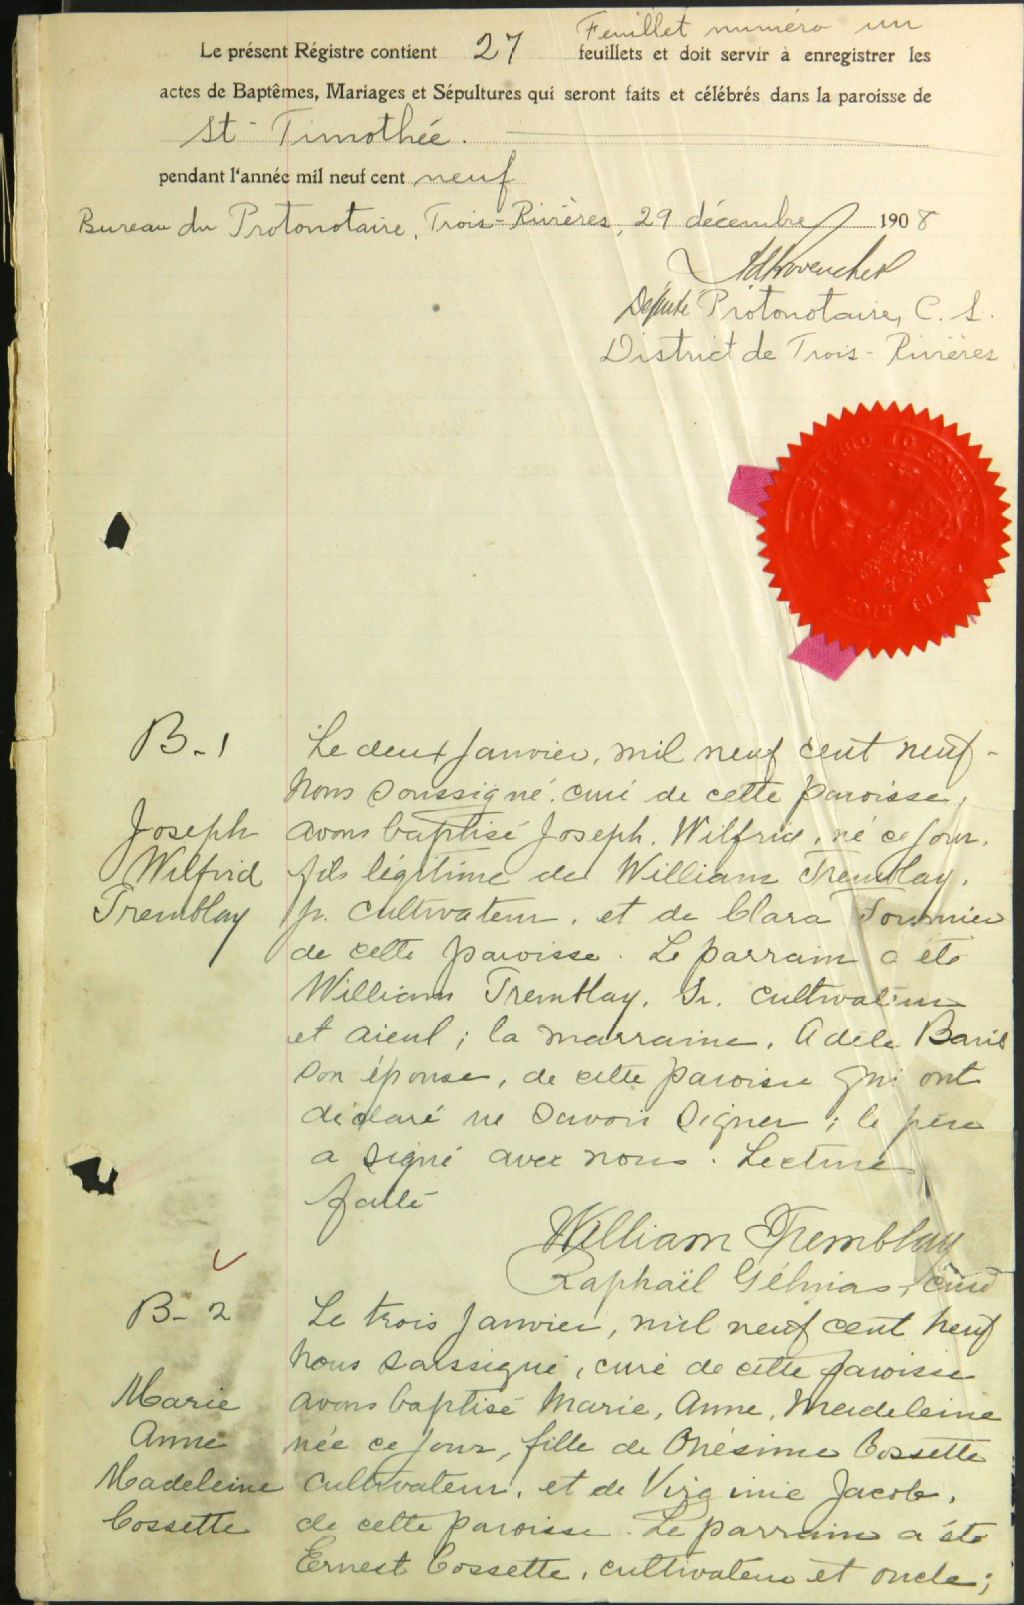 Feuillet numéro un
Le présent Régistre contient 27 feuillets et doit servir à enregistrer les
actes de Baptêmes, Mariages et Sépultures qui seront faits et célébrés dans la paroisse de
St - Timothée.
pendant l'année mil neuf cent neuf
Bureau du Protonotaire, Trois-Rivières, 29 décembre 1908
Député Protonotaire, C. S.
District de Trois-Rivières
B-1
Joseph
Wilfrid
Tremblay
Le deux Janvier, mil neuf cent neuf -
Nous soussigné, curé de cette paroisse,
avons baptisé Joseph. Wilfrid, né ce jour,
fils légitime de William Tremblay,
jr. cultivateur, et de Clara Fournier
de cette paroisse. Le parrain a été
William Tremblay, Sr. cultivateur
et aieul; la marraine, Adèle Baril
son épouse, de cette paroisse qui ont
déclaré ne savoir signer; le père
a signé avec nous. Lecture
faite
William Tremblay
Raphaël Gélinas, curé
B-2
Marie
Anne
Madeleine
Cossette
Le trois Janvier, mil neuf cent neuf
Nous soussigné, curé de cette paroisse
avons baptisé Marie, Anne, Madeleine
née ce jour, fille de Onésime Cossette
cultivateur, et de Virginie Jacob,
de cette paroisse. Le parrain a été
Ernest Cossette, cultivateur et oncle;